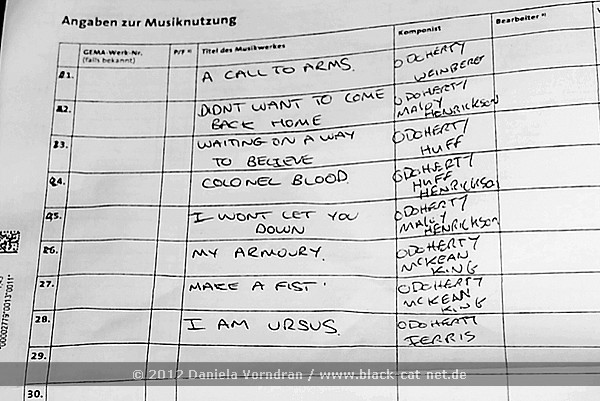 Angaben zur Musiknutzung
GEMA-Werk-Nr. (falls bekannt) P/F Titel des Musikwerkes Komponist Bearbeiter
21. A CALL TO ARMS. ODOHERTY
WEINBERG
22. DIDNT WANT TO COME ODOHERTY
BACK HOME MALOY
HENRICKSON
23. WAITING ON A WAY ODOHERTY
TO BELIEVE HUFF
24. COLONEL BLOOD. ODOHERTY
HUFF
HENRICKSON
25. I WONT LET YOU ODOHERTY
DOWN MALOY
HENRICKSON
26. MY ARMOURY. ODOHERTY
MCKEAN
KING
27. MAKE A FIST' ODOHERTY
MCKEAN
KING
28. I AM URSUS. ODOHERTY
FERRIS
29.
30.
© 2012 Daniela Vorndran / www.black-cat-net.de